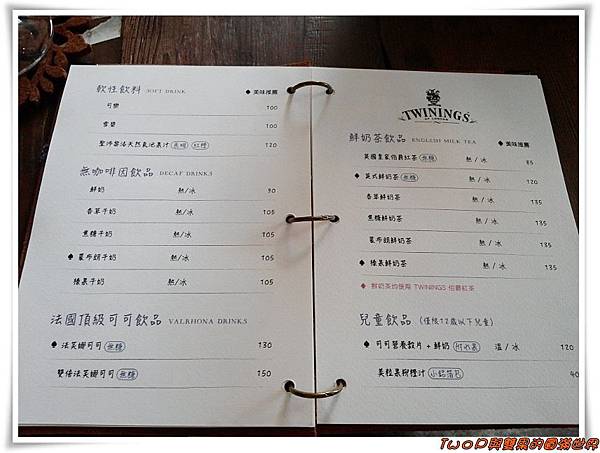 軟性飲料 SOFT DRINK ◆ 美味推薦
可樂 100
雪碧 100
聖沛黎洛天然氣泡果汁 120
無咖啡因飲品 DECAF DRINKS
鮮奶 熱/冰 90
香草牛奶 熱/冰 105
焦糖牛奶 熱/冰 105
◆ 蒙布朗牛奶 熱/冰 105
榛果牛奶 熱/冰 105
法國頂級可可飲品 VALRHONA DRINKS
◆ 法芙娜可可 無糖 130
雙倍法芙娜可可 無糖 150
TWININGS
OF LONDON
鮮奶茶飲品 ENGLISH MILK TEA ◆ 美味推薦
英國皇家伯爵紅茶 無糖 熱/冰 85
◆ 英式鮮奶茶 無糖 熱/冰 120
香草鮮奶茶 熱/冰 135
焦糖鮮奶茶 熱/冰 135
蒙布朗鮮奶茶 熱/冰 135
◆ 榛果鮮奶茶 熱/冰 135
◆ 鮮奶茶均使用 TWININGS 伯爵紅茶
兒童飲品 (僅限12歲以下兒童)
◆ 可可營養穀片+鮮奶 溫/冰 120
美粒果柳橙汁 小鋁箔包 40
TwoP與雙魚的圓滿世界